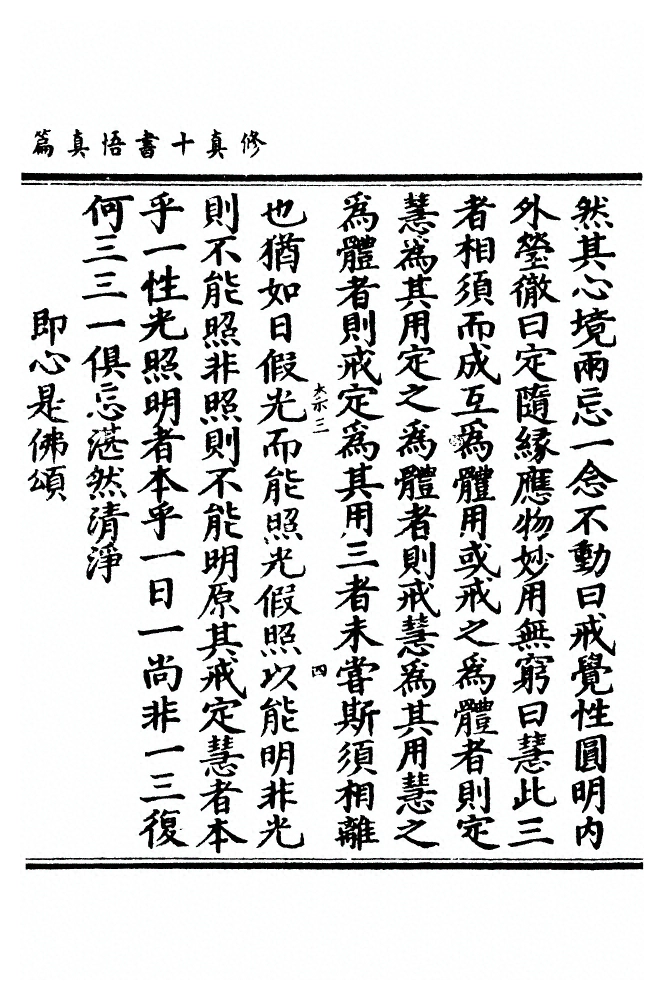 修真十書悟真篇
然其心境兩忘一念不動曰戒覺性圓明內
外瑩徹曰定隨緣應物妙用無窮曰慧此三
者相須而成互爲體用或戒之爲體者則定
慧為其用定之爲體者則戒慧爲其用慧之
爲體者則戒定爲其用三者未嘗斯須相離
大示三
四
也猶如日假光而能照光假照以能明非光
則不能照非照則不能明原其戒定慧者本
乎一性光照明者本乎一日一尚非一三復
何三三一俱忘湛然清淨
即心是佛頌